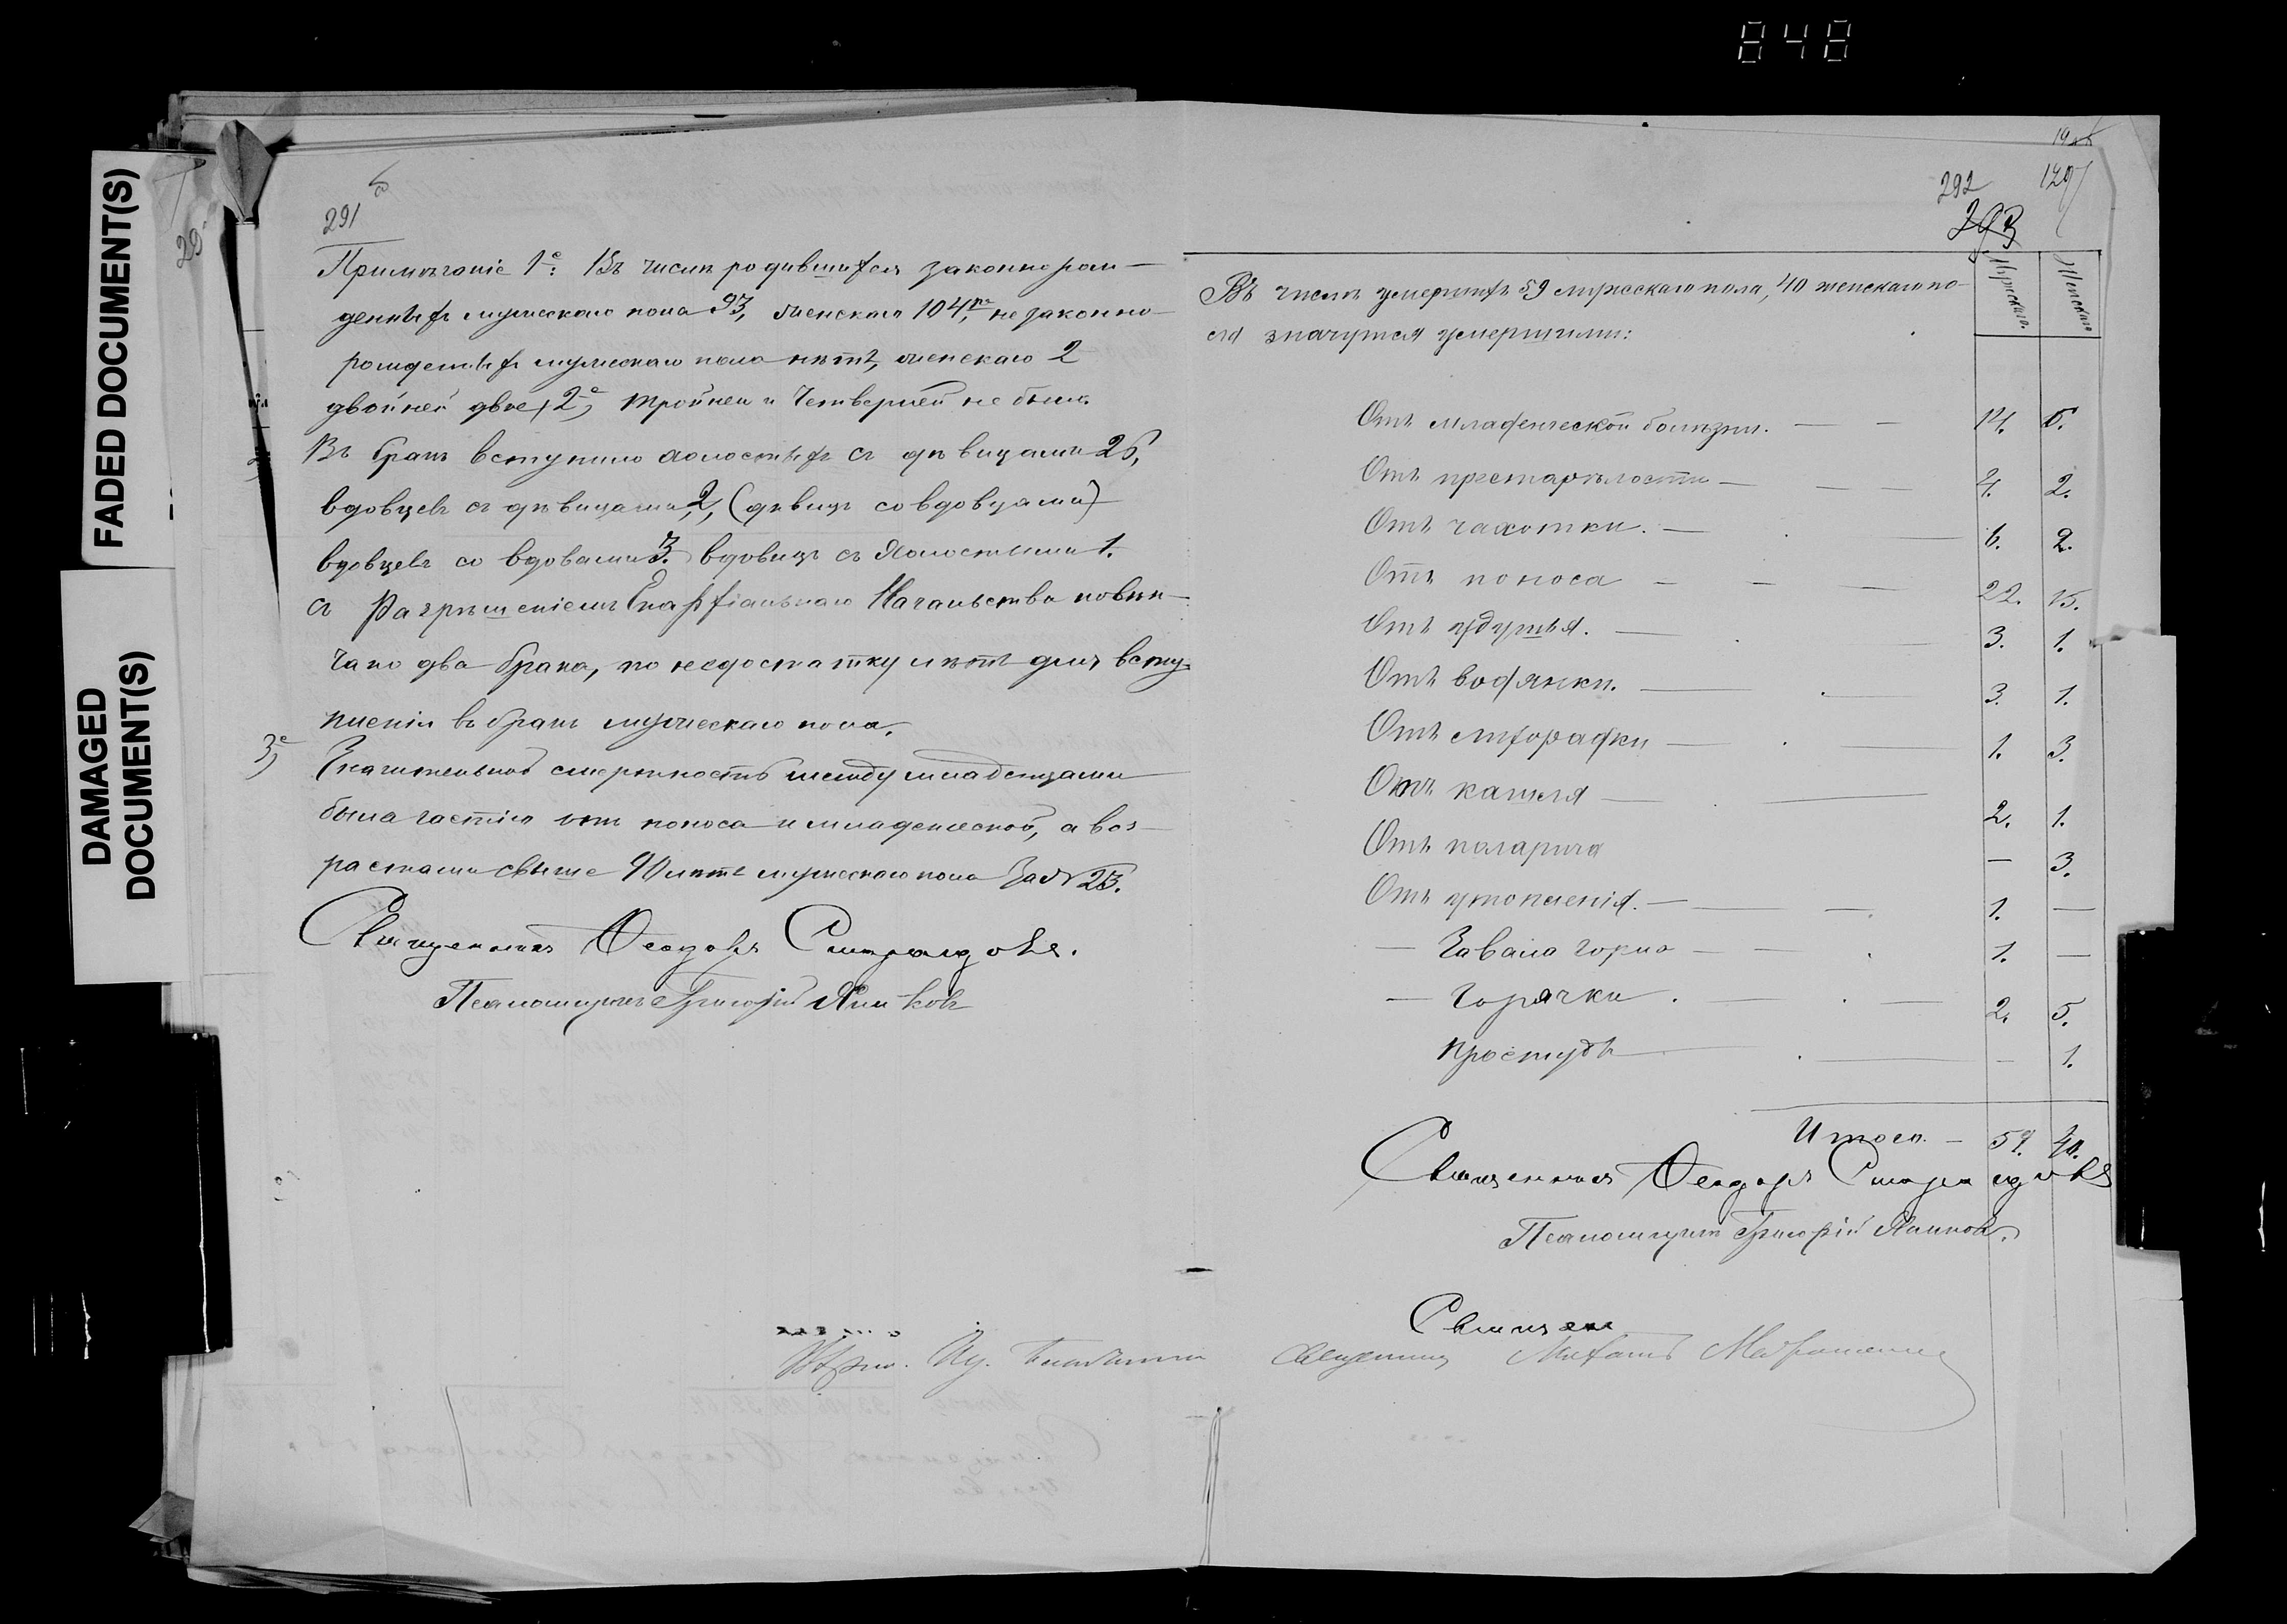 848
FADED DOCUMENT(S)
DAMAGED
DOCUMENT(S)
291
Примѣчаніе 1е: Въ числѣ родившихся законнорож-
денныхъ мужескаго пола 93, женскаго 104, незаконно-
рожденныхъ мужескаго пола нѣтъ, женскаго 2
двойней двое, 2е, тройней и четверней не было.
Въ бракъ вступило холостыхъ съ дѣвицами 26,
вдовцевъ съ дѣвицами, 2, (дѣвицъ со вдовцами)
вдовцевъ со вдовами 3. вдовицъ съ холостыми 1.
съ Разрѣшеніемъ Епархіальнаго Начальства повѣн-
чано два брака, по недостатку лѣтъ для всту-
пленія въ бракъ мужескаго пола.
3е Значительная смертность между младенцами
была частію отъ поноса и младенческой, а воз-
растами свыше лѣтъ мужескаго пола 23.
Священникъ Ѳеодоръ
Псаломщикъ Григорій
292
293
Мужскаго.
Женскаго
Въ числѣ умершихъ 59 мужескаго пола, 40 женскаго по-
ла значутся умершими:
Отъ младенческой болѣзни. — — 14. 6.
Отъ престарѣлости — — — 4. 2.
Отъ чахотки. — — 6. 2.
Отъ поноса — — — 22. 15.
Отъ удушья. — — 3. 1.
Отъ водянки. — — 3. 1.
Отъ лихорадки — — 1. 3.
Отъ кашля — — 2. 1.
Отъ — 3.
Отъ утопленія. — — — 1. —
— Завала горла — — 1. —
— Горячки. — — 2. 5.
Простуды — — — 1.
Итого. — 59. 40.
Священникъ Ѳеодоръ
Псаломщикъ Григорій
Священ
Священникъ Михаилъ